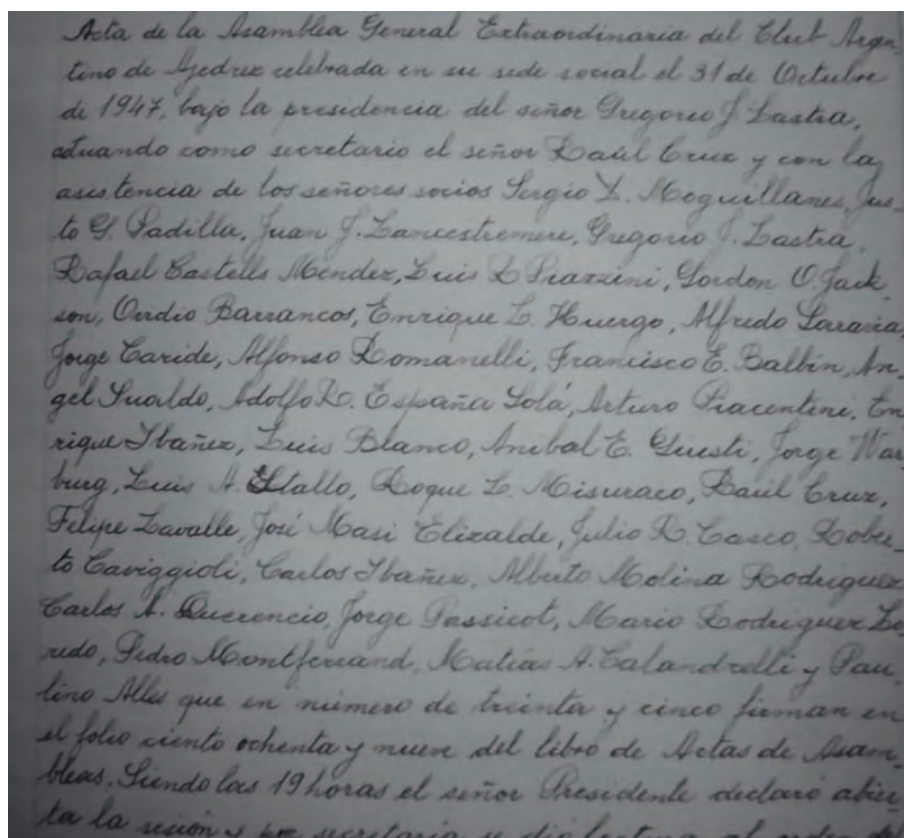 Acta de la Asamblea General Extraordinaria del Club Argen-
tino de Ajedrez celebrada en su sede social el 31 de Octubre
de 1947, bajo la presidencia del señor Gregorio J. Lastra,
actuando como secretario el señor Raúl Cruz y con la
asistencia de los señores socios Sergio L. Moguillanes, Jus-
to G. Padilla, Juan J. Gregorio J. Lastra,
Rafael Castells Mendez, Luis R Piazzini, Gordon O. Jack
son, Ovidio Barrancos, Enrique L. Huergo, Alfredo Saravia,
Jorge Caride, Alfonso Romanelli, Francisco E. Balbin, An-
gel Sualdo, Adolfo R. España Solá, Arturo Piacentini, En
rique Ibañez, Luis Blanco, Anibal E. Giusti, Jorge War
burg, Luis A. Roque L. Misuraco, Raúl Cruz,
Felipe Lavalle, José Masi Elizalde, Julio R. Casco, Rober-
to Caviggioli, Carlos Ibañez, Alberto Molina Rodriguez
Carlos A. Querencio, Jorge Passicot, Mario Rodriguez Lo
redo, Pedro Montferrand, Matias A. Calandrelli y Pau
lino Alles que en número de treinta y cinco firman en
el folio ciento ochenta y nueve del libro de Actas de Asam-
bleas. Siendo las 19 horas el señor Presidente declaró abier-
ta la sesión y por secretaria se dió lectura al